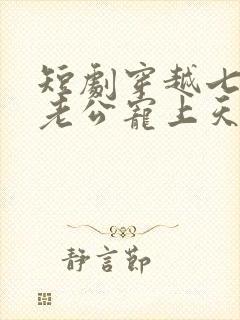 短劇穿越七
老公寵上天
靜言節